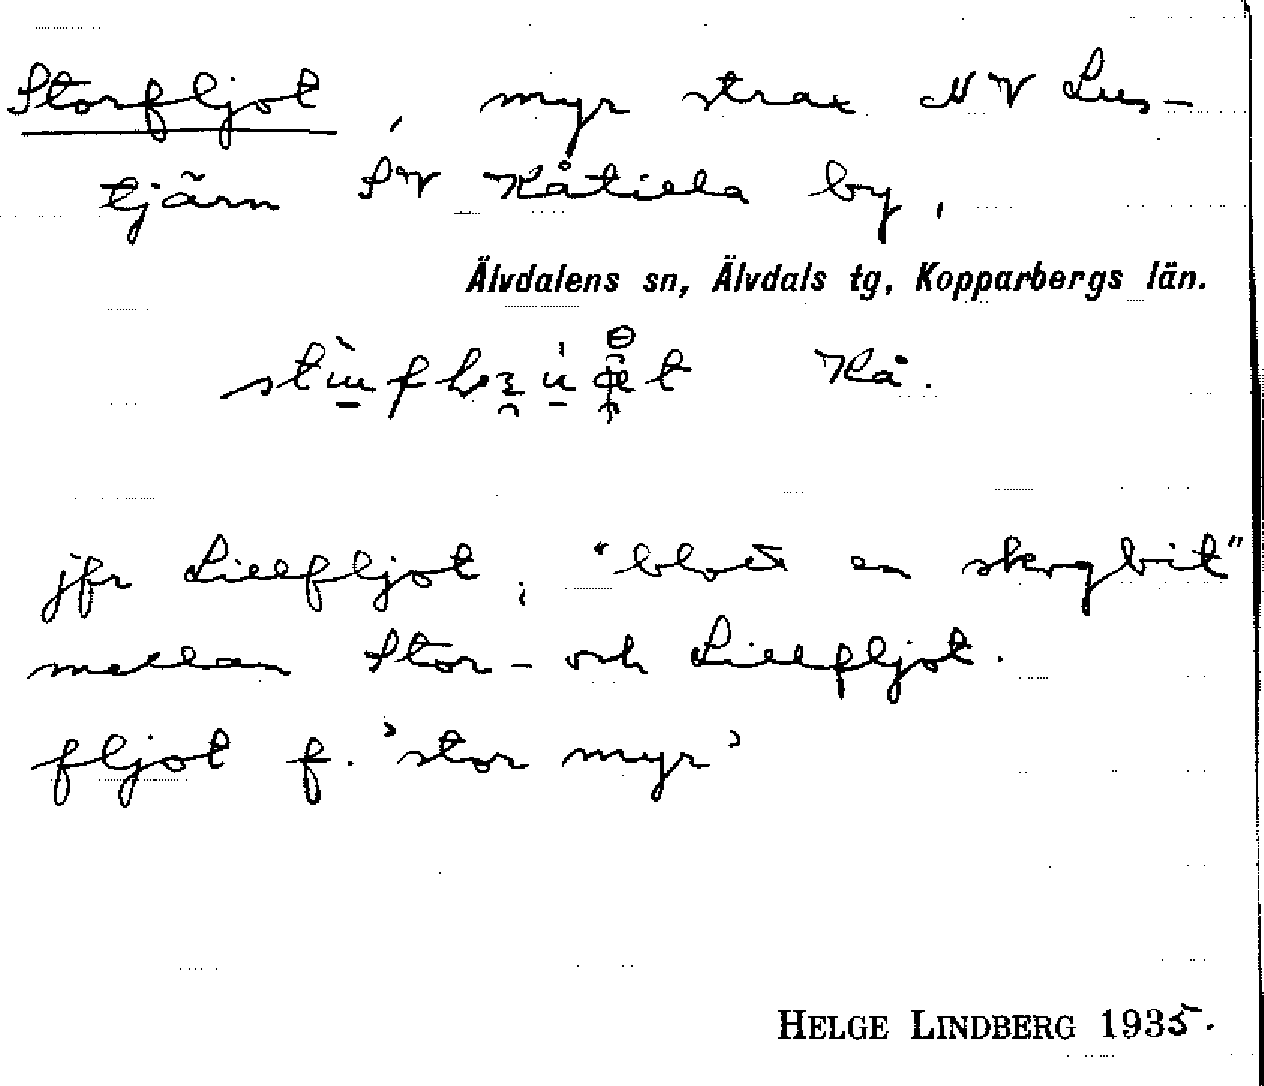 Storfljot, myr strax NV Lus-
tjärn SV Kåtilla by,
Älvdalens sn, Älvdals tg, Kopparbergs län.
Kå.
jfr Lillfljot; "blott en skogbit"
mellan Stor- och Lillfljot.
fljot f. 'stor myr'
HELGE LINDBERG 1935.